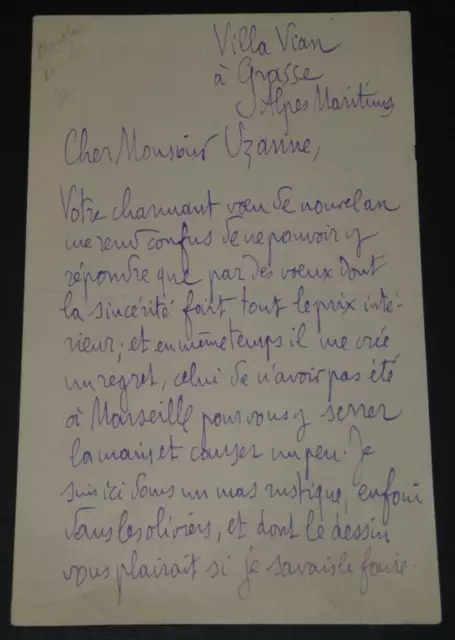 Villa Vian
à Grasse
Alpes Maritimes
Cher Monsieur Uzanne,
Votre charmant vœu de nouvel an
me rend confus de ne pouvoir y
répondre que par des voeux dont
la sincérité fait tout le prix inté-
rieur; et en même temps il me crée
un regret, celui de n'avoir pas été
à Marseille pour vous y serrer
la main et causer un peu. Je
suis ici dans un mas rustique, enfoui
dans les oliviers, et dont le dessin
vous plairait si je savais le faire.